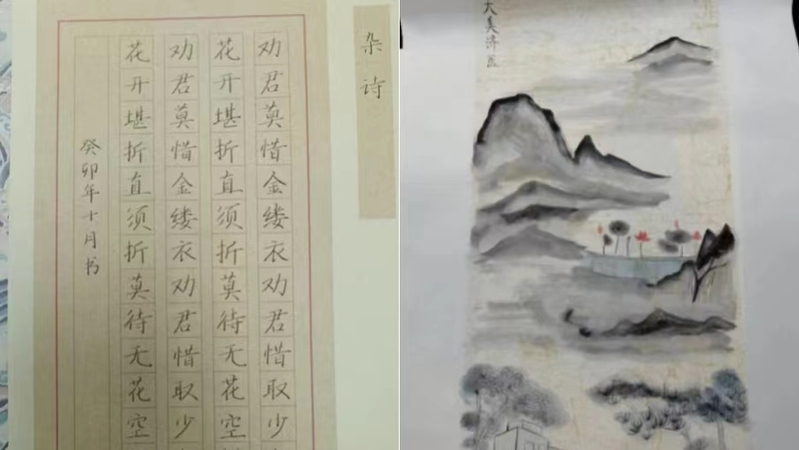 杂诗
劝君莫惜金缕衣劝君惜取少
花开堪折直须折莫待无花空
劝君莫惜金缕衣劝君惜取少
花开堪折直须折莫待无花空
癸卯年十月书
大美